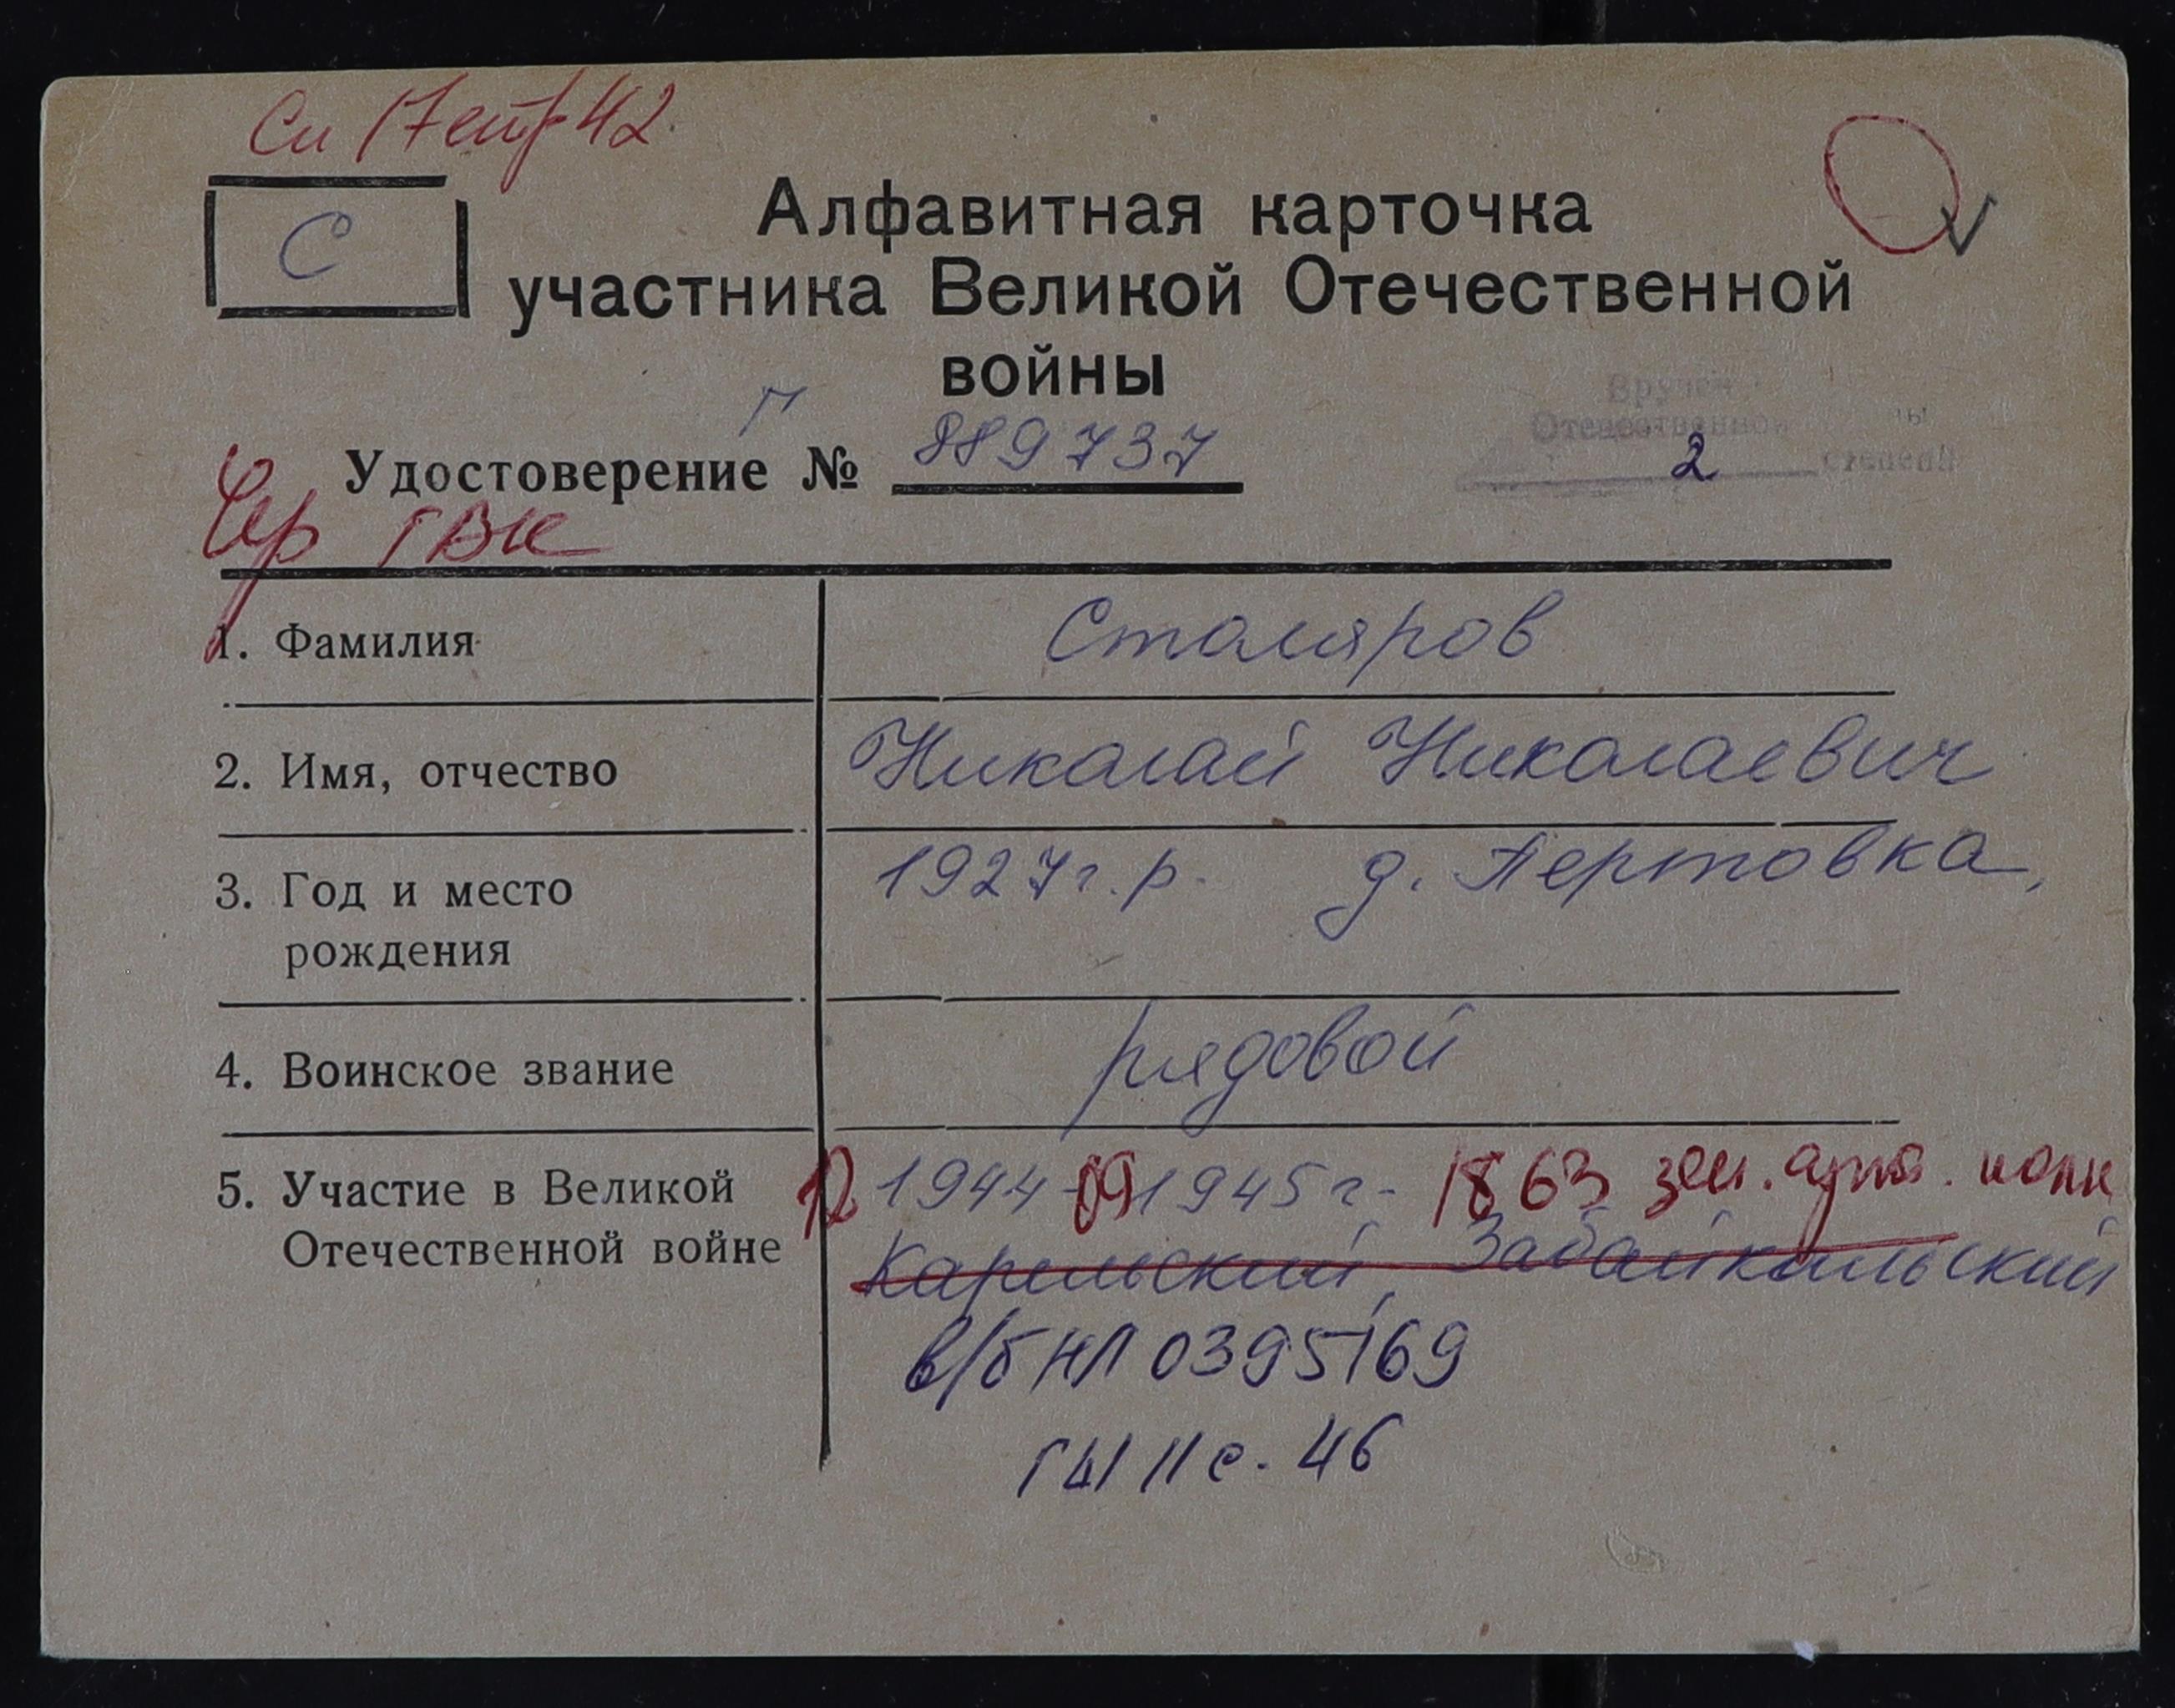 Сп 17 стр 42
С
Алфавитная карточка
участника Великой Отечественной
войны
Г
Удостоверение № 889737
Вручен
Отечественной ны
2 степени
Чер ГВК
1. Фамилия Столяров
2. Имя, отчество Николай Николаевич
3. Год и место 1927 г.р. д. Пертовка,
рождения
4. Воинское звание рядовой
5. Участие в Великой 12 1944-09 1945 г- 1863 зен. арт. полк
Отечественной войне Карельский, Забайкальский
в/б НЛ 0395169
с. 46